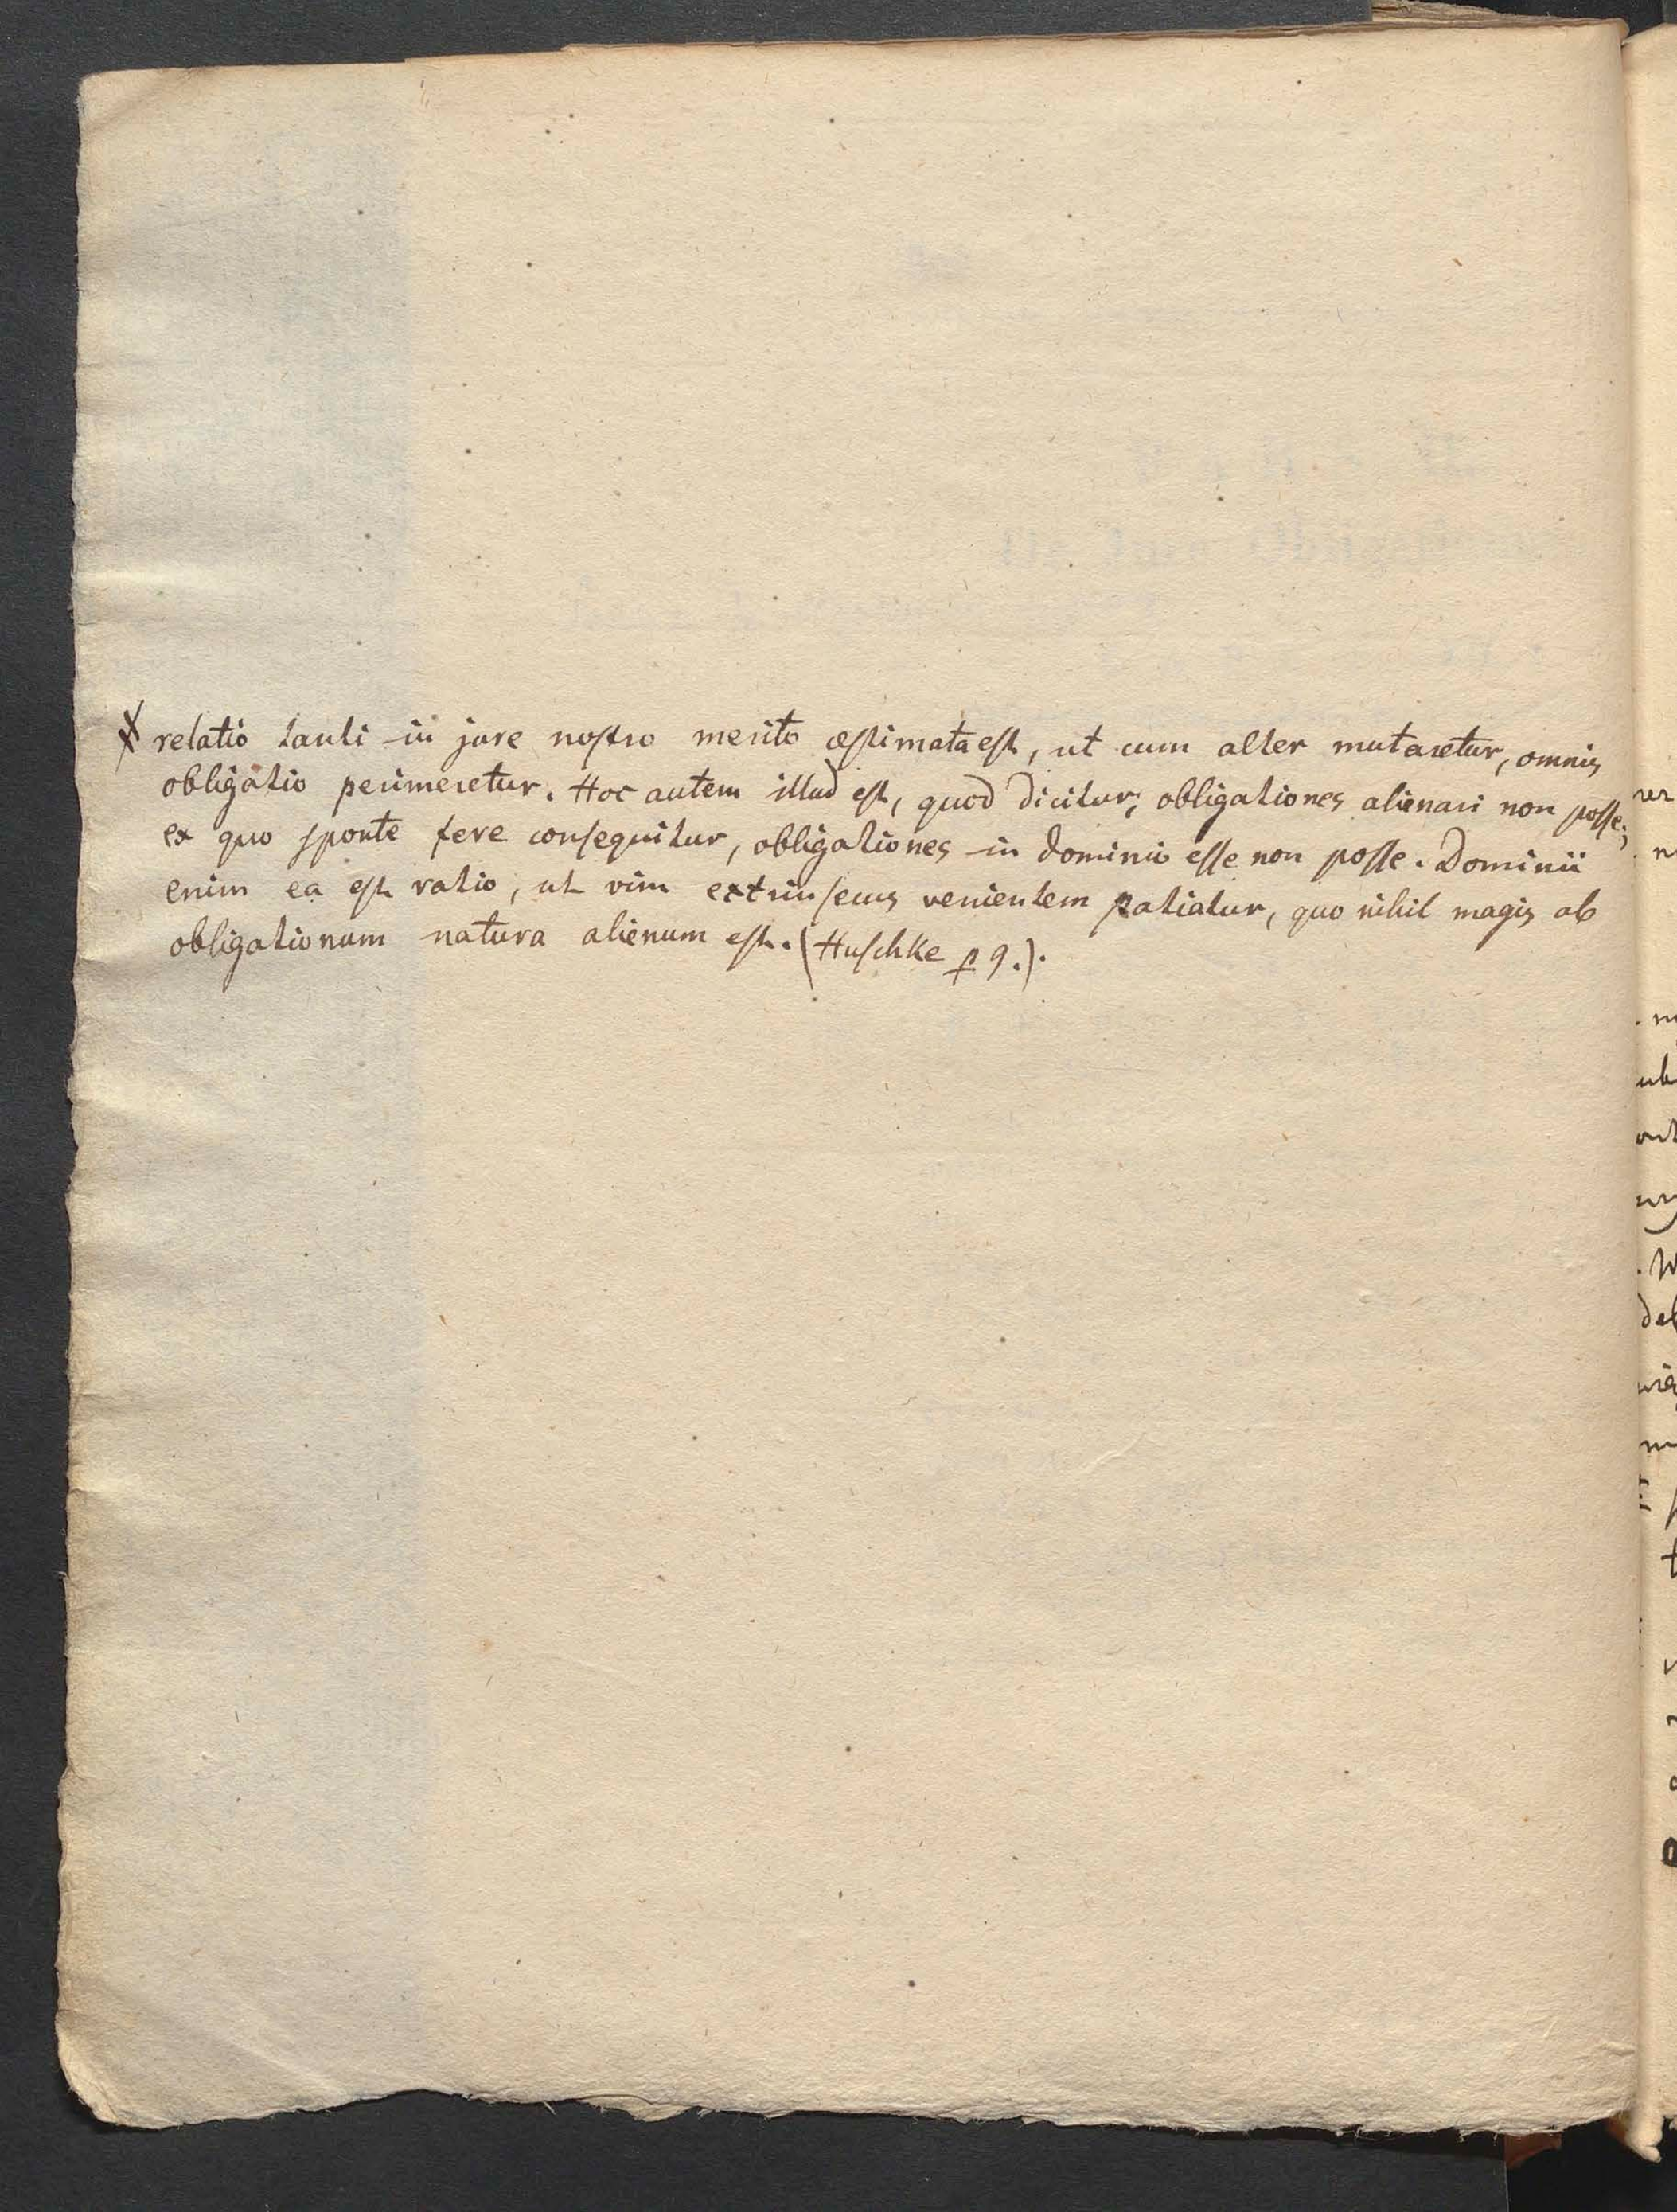 X relatio tanti in jure nostro merito æstimata est, ut cum alter mutaretur, omnis
obligatio perimeretur. Hoc autem illud est, quod dicitur, obligationes alienari non posse;
ex quo sponte fere consequitur, obligationes in dominio esse non posse. Dominii
enim ea est ratio, ut vim extrinsecus venientem patiatur, quo nihil magis ab
obligationum natura alienum est. (Huschke p 9.).